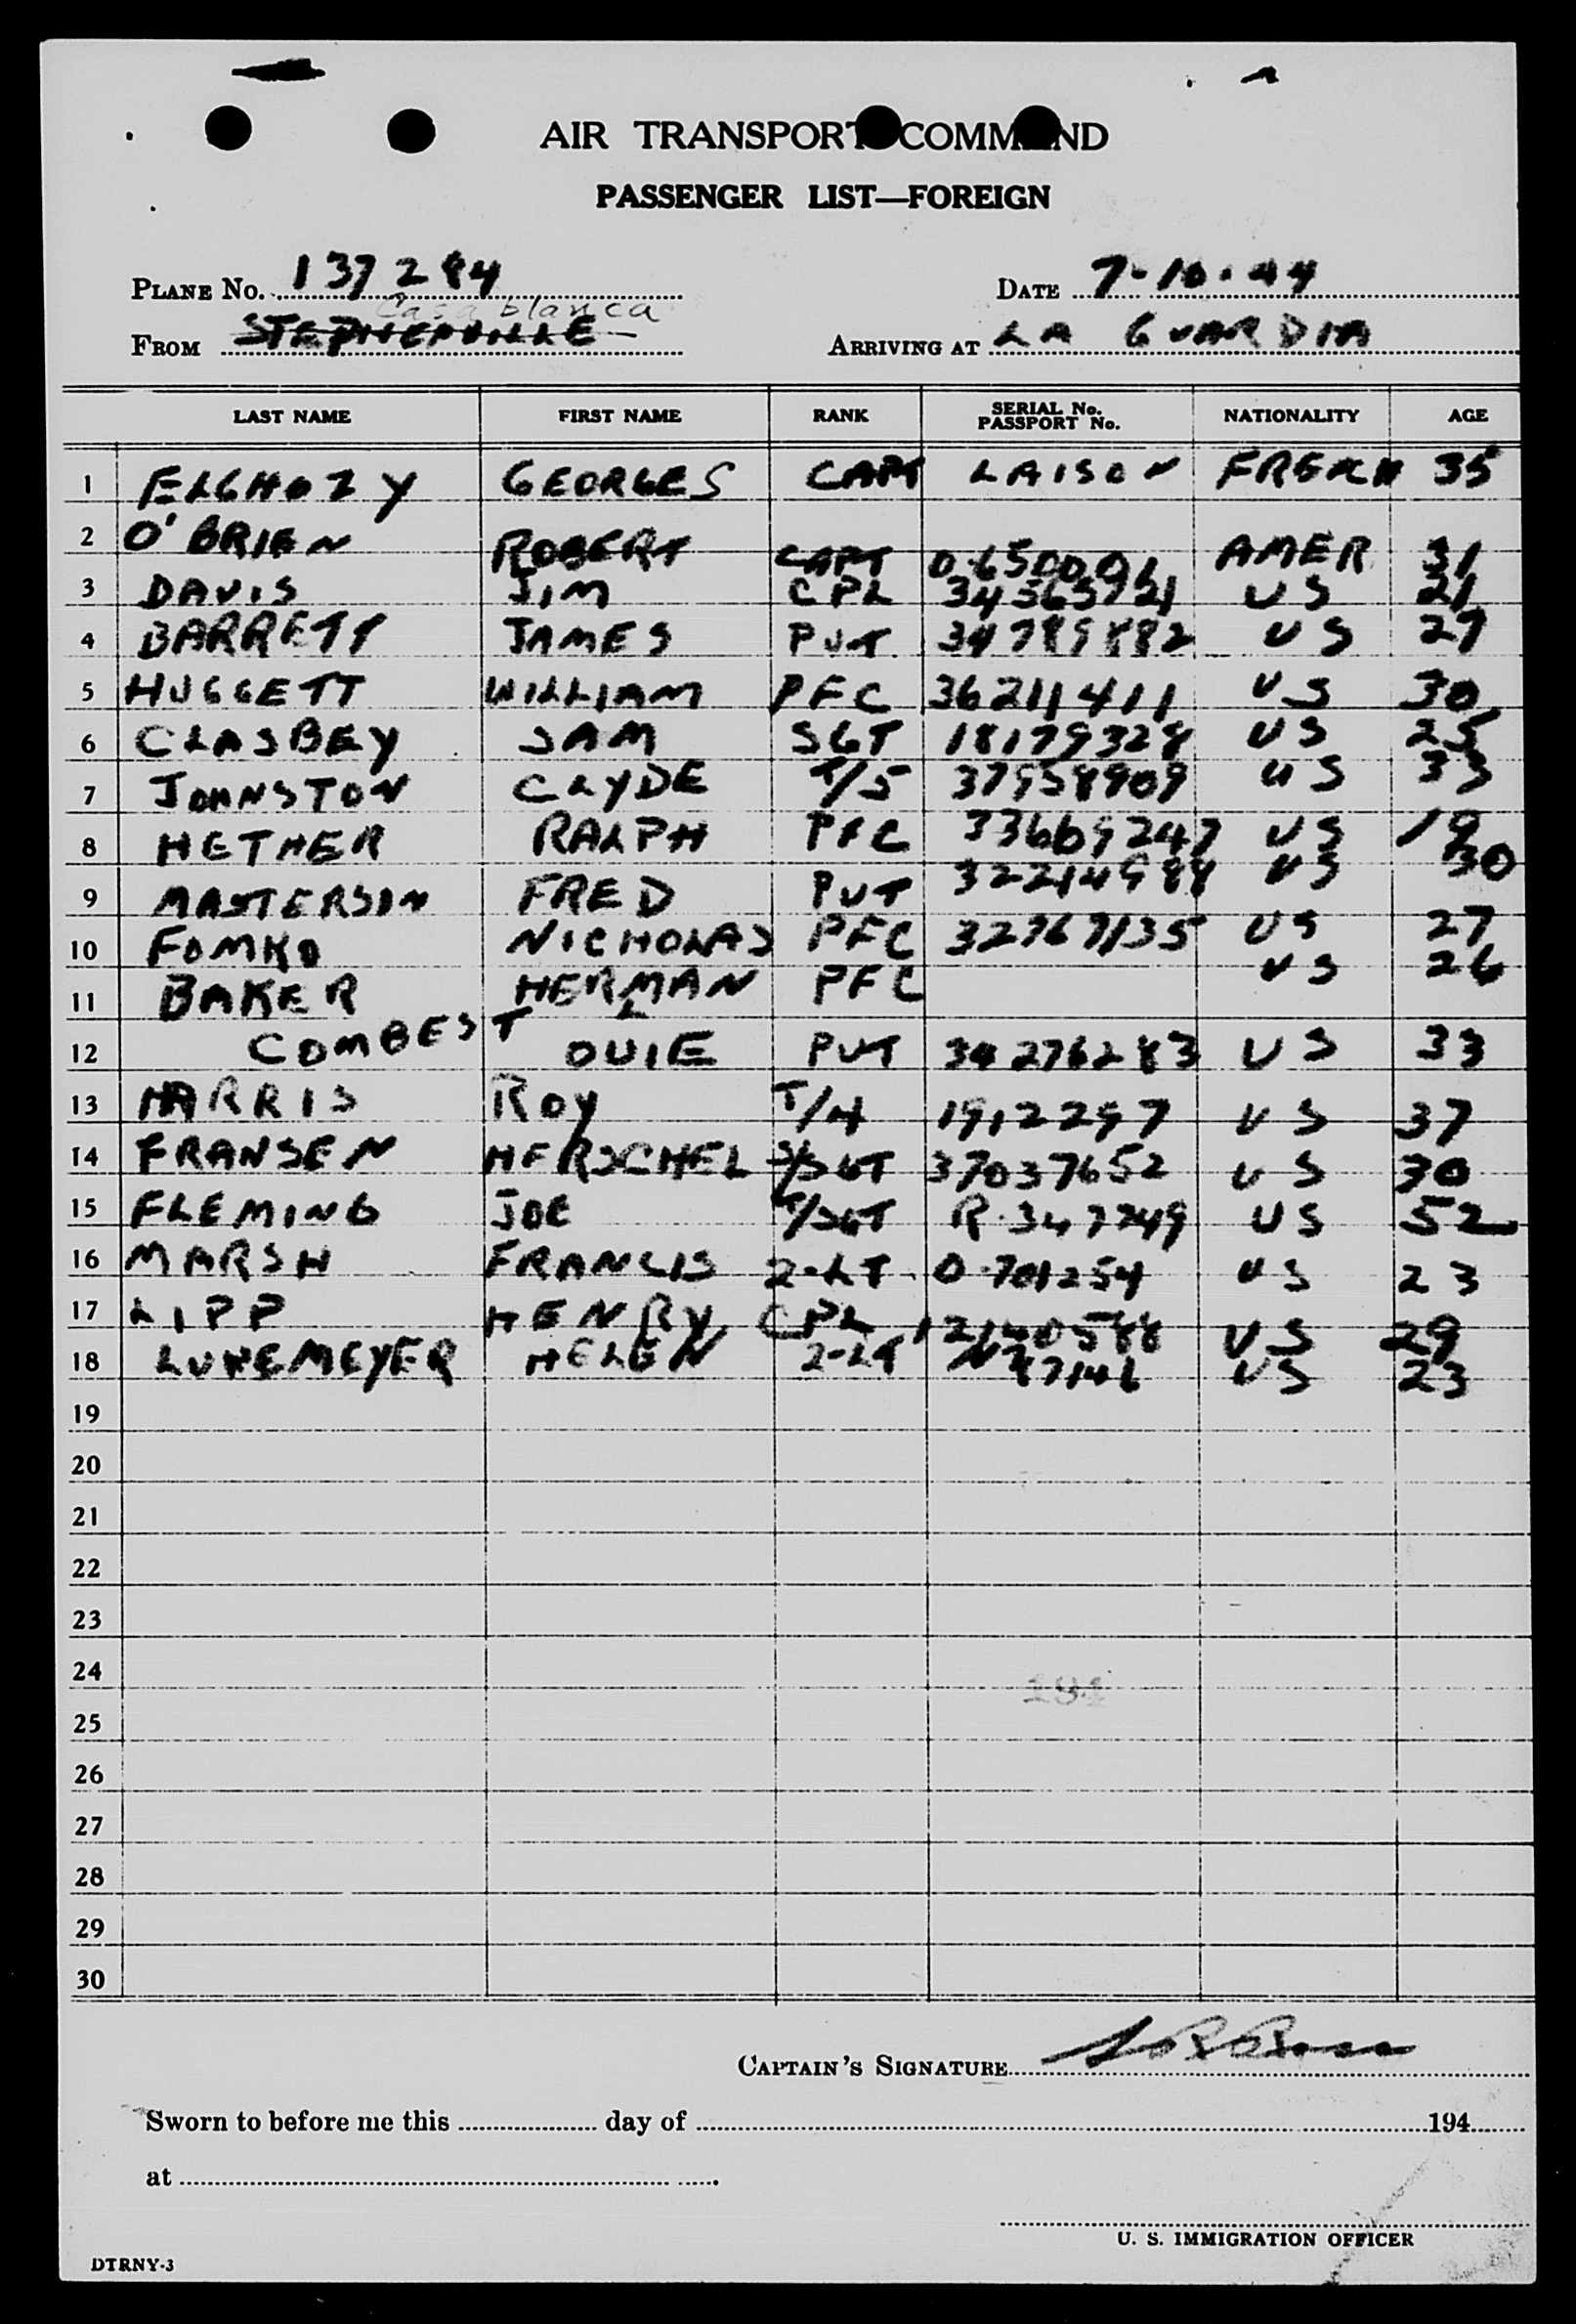 AIR TRANSPORT COMMAND
PASSENGER LIST—FOREIGN
PLANE No. 137284 DATE 7-10-44
Casablanca
FROM STEPHENVILLE ARRIVING AT LA GUARDIA
LAST NAME FIRST NAME RANK SERIAL No. PASSPORT No. NATIONALITY AGE
1 ELGHOZY GEORGES CAPT LAISON FRENCH 35
2 O'BRIEN ROBERT CAPT AMER 31
3 DAVIS JIM CPL US 21
4 BARRETT JAMES PVT 34789882 US 27
5 HUGGETT WILLIAM PFC 36211411 US 30
6 CLASBEY SAM SGT 18179328 US 25
7 JOHNSTON CLYDE T/5 37958909 US 33
8 HETHER RALPH PFC 33669247 US 19
9 MASTERSON FRED PVT 32214988 US 30
10 FOMKO NICHOLAS PFC 32767135 US 27
11 BAKER HERMAN PFC US 26
12 COMBEST OVIE PVT 34276283 US 33
13 HARRIS ROY T/4 1912297 US 37
14 FRANSEN HERSCHEL S/SGT 37037652 US 30
15 FLEMING JOE T/SGT R-347749 US 52
16 MARSH FRANCIS 2-LT O-701254 US 23
17 LIPP HENRY CPL US 29
18 HELEN 2-LT US 23
19
20
21
22
23
24
25
26
27
28
29
30
CAPTAIN'S SIGNATURE
Sworn to before me this day of 194
at
U. S. IMMIGRATION OFFICER
DTRNY-3